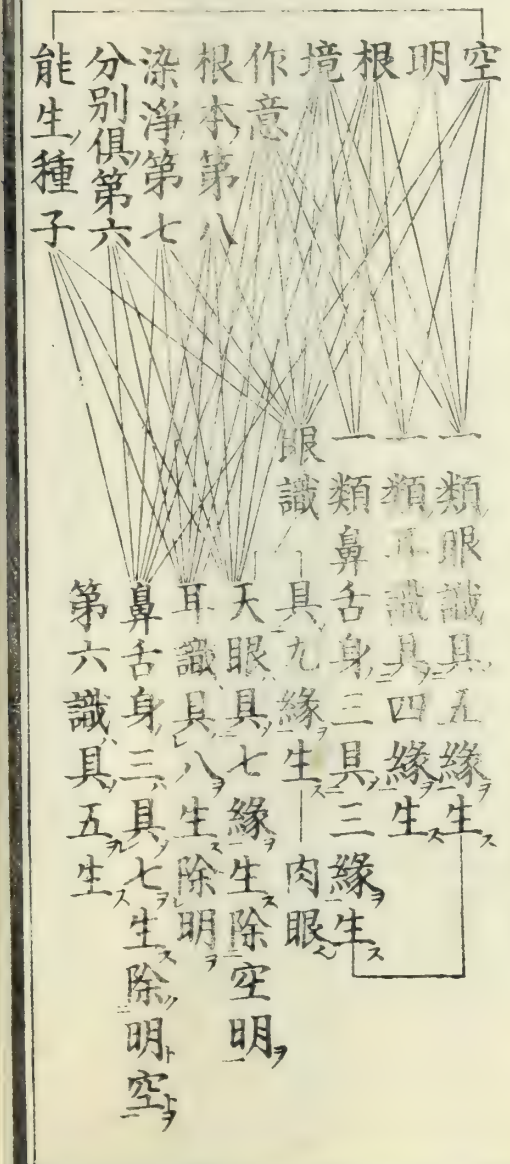 空
明
根
境
作意
根本第八
染淨第七
分別俱第六
能生種子
一類眼識具五緣生
一類耳識具四緣生
一類鼻舌身三具三緣生
眼識
具九緣生
肉眼
天眼具七緣生除空明
耳識具八生除明
鼻舌身三具七生除明空
第六識具五生